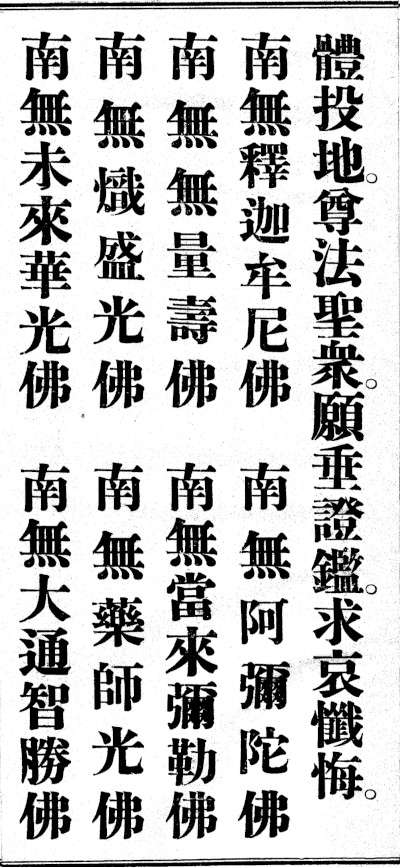 體投地。尊法聖衆。願垂證鑑。求哀懺悔。
南無釋迦牟尼佛　南無阿彌陀佛
南無無量壽佛　南無當來彌勒佛
南無熾盛光佛　南無藥師光佛
南無未來華光佛　南無大通智勝佛